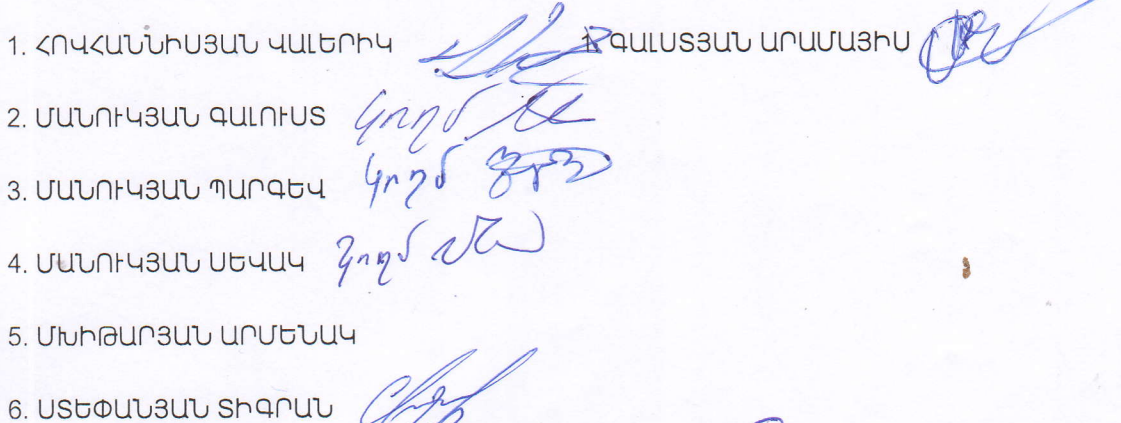 1. ՀՈՎՀԱՆՆԻՍՅԱՆ ՎԱԼԵՐԻԿ 1. ԳԱԼՍՏՅԱՆ ԱՐԱՄԱՅԻՍ
2. ՄԱՆՈՒԿՅԱՆ ԳԱԼՈՒՍՏ կողմ
3. ՄԱՆՈՒԿՅԱՆ ՊԱՐԳԵՎ կողմ
4. ՄԱՆՈՒԿՅԱՆ ՍԵՎԱԿ կողմ
5. ՄԽԻԹԱՐՅԱՆ ԱՐՄԵՆԱԿ
6. ՍՏԵՓԱՆՅԱՆ ՏԻԳՐԱՆ